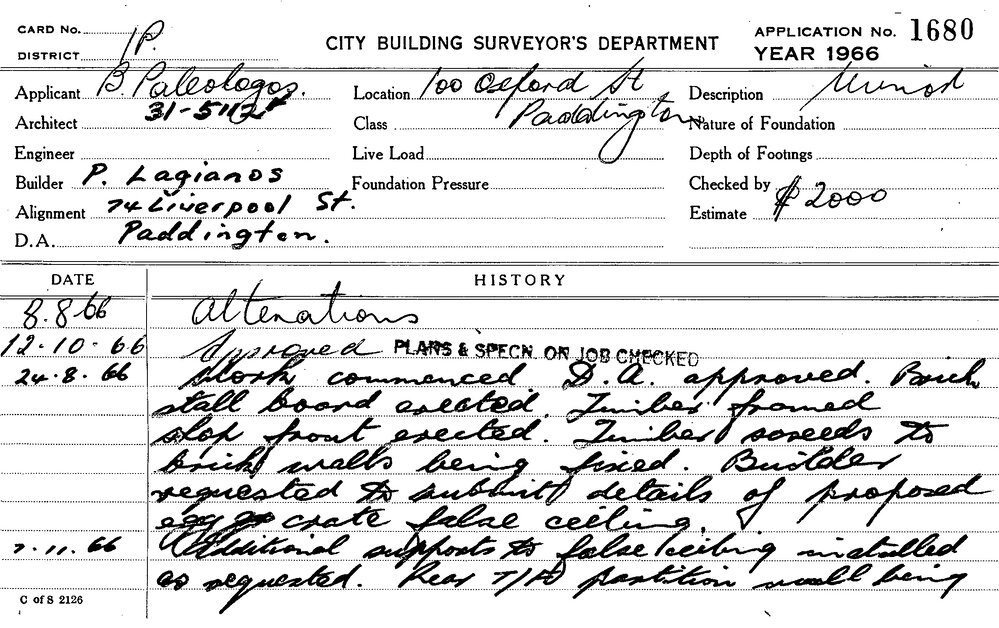 CARD No. 1P.
DISTRICT
CITY BUILDING SURVEYOR'S DEPARTMENT
APPLICATION No. 1680
YEAR 1966
Applicant B. Paleologos.
31-5112
Location 100 Oxford St
Paddington
Description Minor
Architect
Class
Nature of Foundation
Engineer
Live Load
Depth of Footings
Builder P. Lagianos
Foundation Pressure
Checked by
Alignment 74 Liverpool St.
Estimate $2000
D.A. Paddington.
DATE HISTORY
8.8.66 Alterations
12.10.66 Approved PLANS & SPECN. ON JOB CHECKED
24.8.66 Work commenced D.A. approved. Brick
stall board erected. Timber framed
shop front erected. Timber screeds to
brick walls being fixed. Builder
requested to submit details of proposed
egg crate false ceiling.
7.11.66 Additional supports to false ceiling installed
as requested. Rear partition wall being
C of S 2126